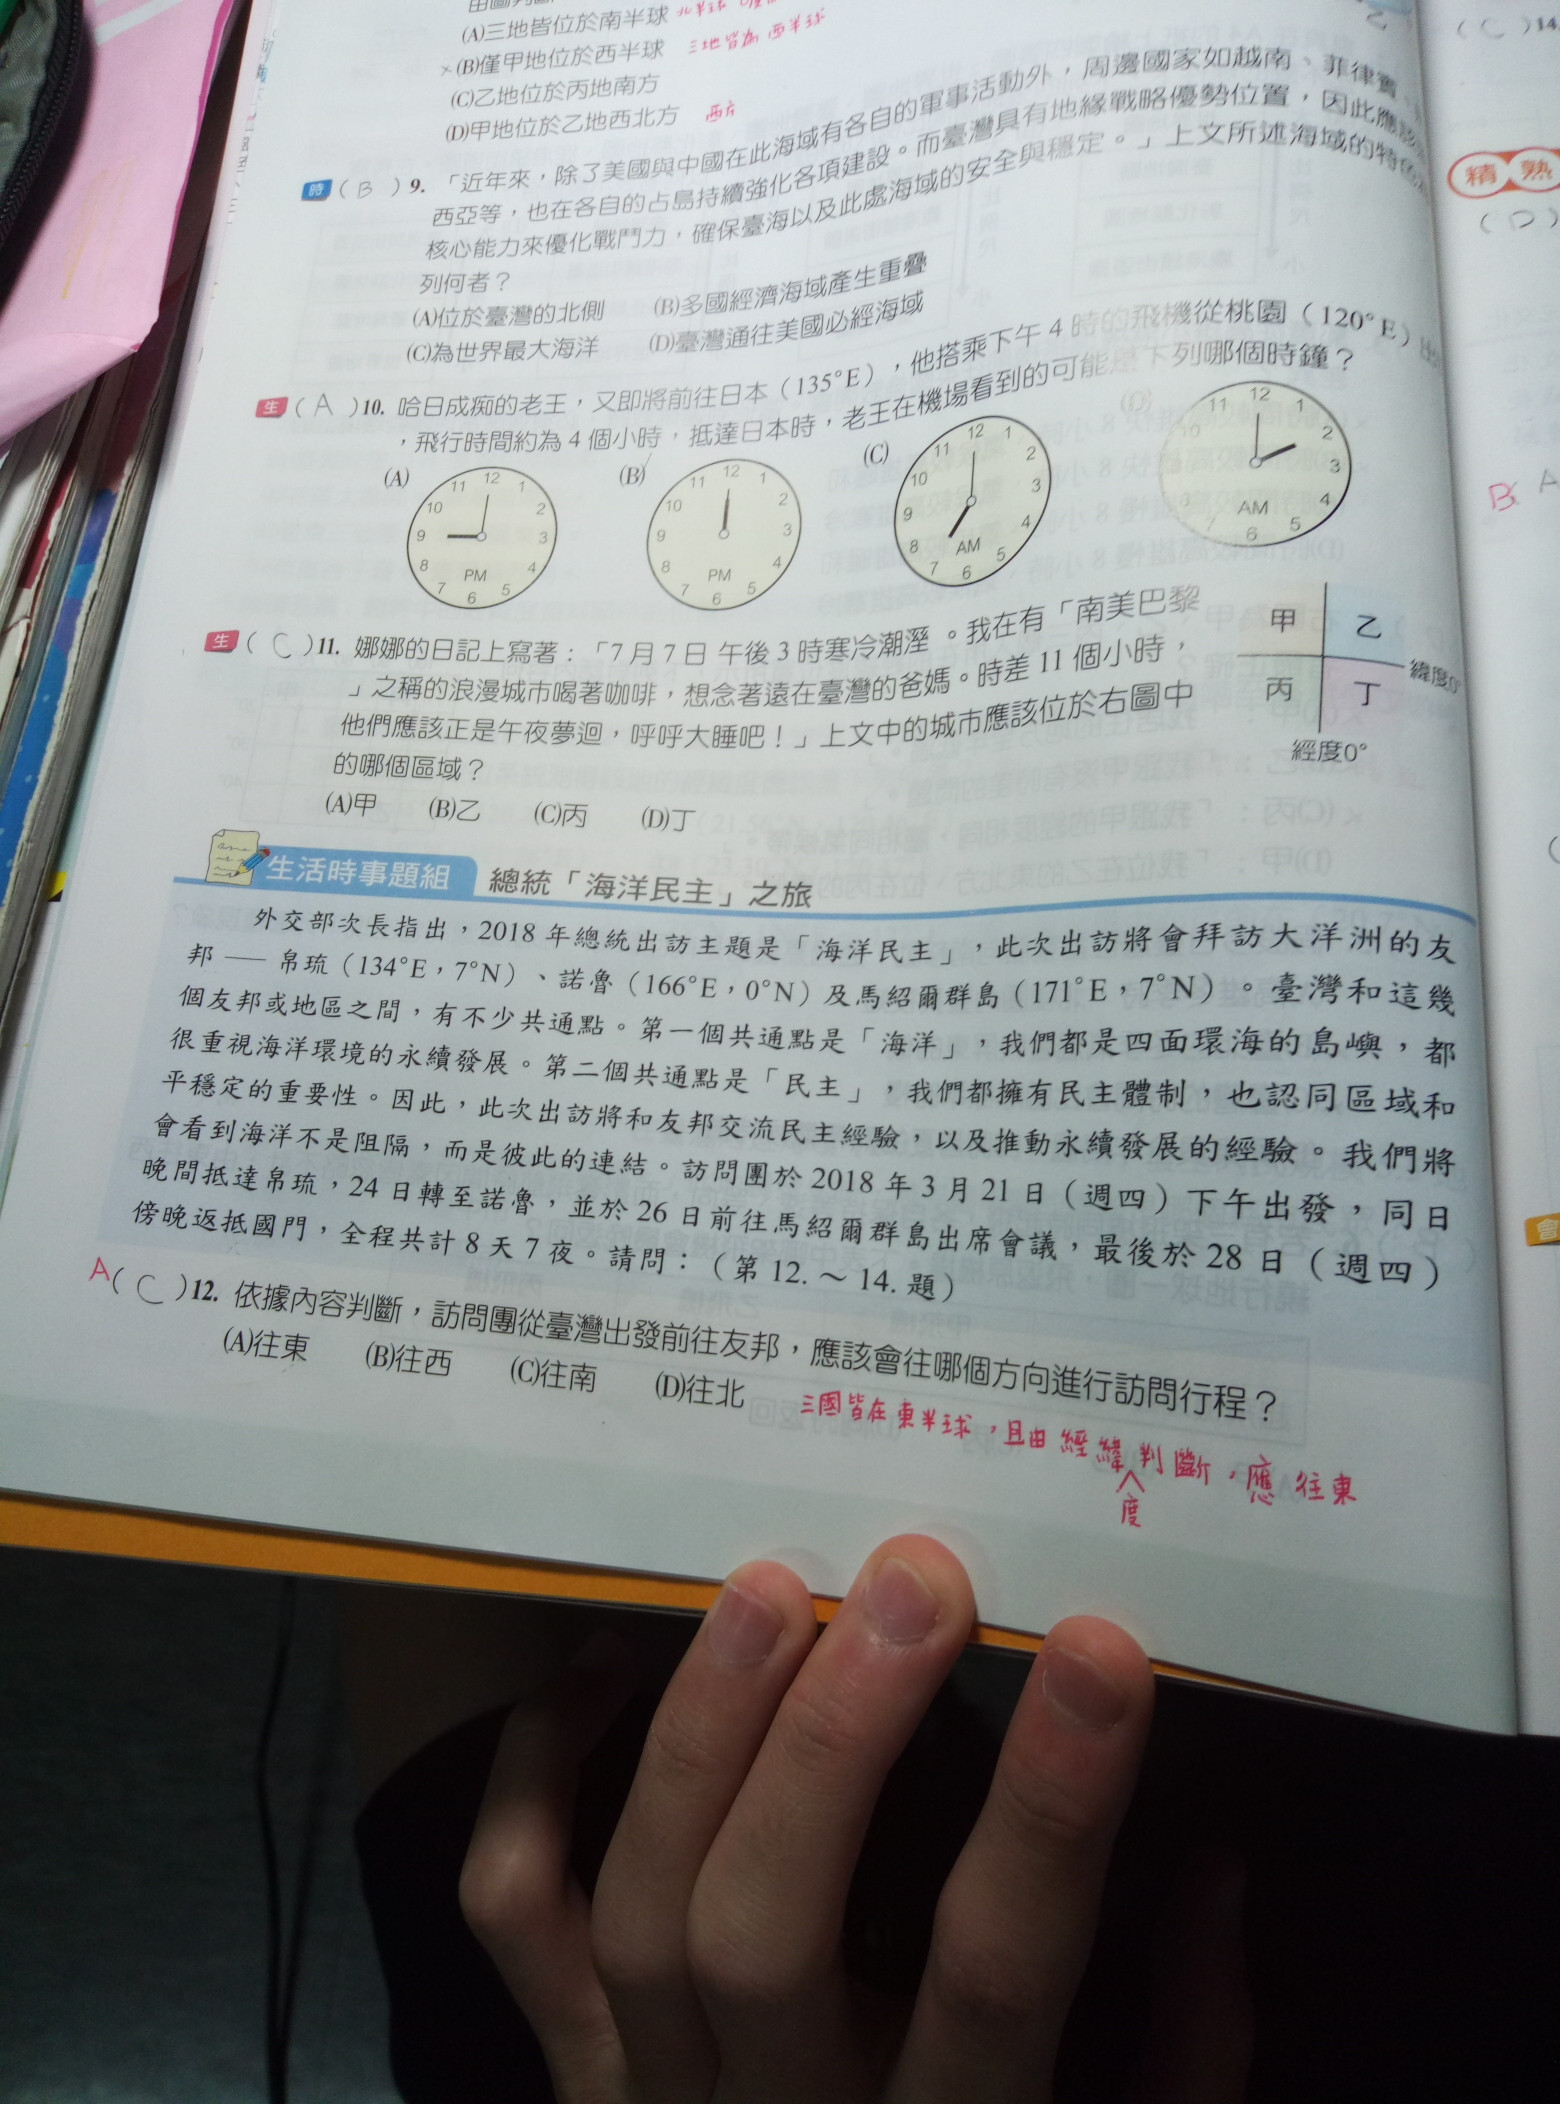 (A)三地皆位於南半球 北半球
×(B)僅甲地位於西半球 三地皆為西半球
(C)乙地位於丙地南方
(D)甲地位於乙地西北方 西方
時(B)9. 「近年來，除了美國與中國在此海域有各自的軍事活動外，周邊國家如越南、菲律賓、
西亞等，也在各自的占島持續強化各項建設。而臺灣具有地緣戰略優勢位置，因此應
核心能力來優化戰鬥力，確保臺海以及此處海域的安全與穩定。」上文所述海域的特
列何者？
(A)位於臺灣的北側 (B)多國經濟海域產生重疊
(C)為世界最大海洋 (D)臺灣通往美國必經海域
生(A)10. 哈日成痴的老王，又即將前往日本（135°E），他搭乘下午4時的飛機從桃園（120°E）出
，飛行時間約為4個小時，抵達日本時，老王在機場看到的可能是下列哪個時鐘？
(A) (B) (C) (D)
12 1 2 3 4 5 6 7 8 9 10 11 PM
12 1 2 3 4 5 6 7 8 9 10 11 PM
12 1 2 3 4 5 6 7 8 9 10 11 AM
12 1 2 3 4 5 6 7 8 10 11 AM
生(C)11. 娜娜的日記上寫著：「7月7日 午後3時寒冷潮溼 。我在有「南美巴黎
」之稱的浪漫城市喝著咖啡，想念著遠在臺灣的爸媽。時差11個小時，
他們應該正是午夜夢迴，呼呼大睡吧！」上文中的城市應該位於右圖中
的哪個區域？
甲 乙
緯度0°
丙 丁
經度0°
(A)甲 (B)乙 (C)丙 (D)丁
生活時事題組 總統「海洋民主」之旅
外交部次長指出，2018年總統出訪主題是「海洋民主」，此次出訪將會拜訪大洋洲的友
邦——帛琉（134°E，7°N）、諾魯（166°E，0°N）及馬紹爾群島（171°E，7°N）。臺灣和這幾
個友邦或地區之間，有不少共通點。第一個共通點是「海洋」，我們都是四面環海的島嶼，都
很重視海洋環境的永續發展。第二個共通點是「民主」，我們都擁有民主體制，也認同區域和
平穩定的重要性。因此，此次出訪將和友邦交流民主經驗，以及推動永續發展的經驗。我們將
會看到海洋不是阻隔，而是彼此的連結。訪問團於2018年3月21日（週四）下午出發，同日
晚間抵達帛琉，24日轉至諾魯，並於26日前往馬紹爾群島出席會議，最後於28日（週四）
傍晚返抵國門，全程共計8天7夜。請問：（第12.～14.題）
A(C)12. 依據內容判斷，訪問團從臺灣出發前往友邦，應該會往哪個方向進行訪問行程？
(A)往東 (B)往西 (C)往南 (D)往北
三國皆在東半球，且由經緯度判斷，應往東
乙
(C)14.
精熟
(D)
B A
會